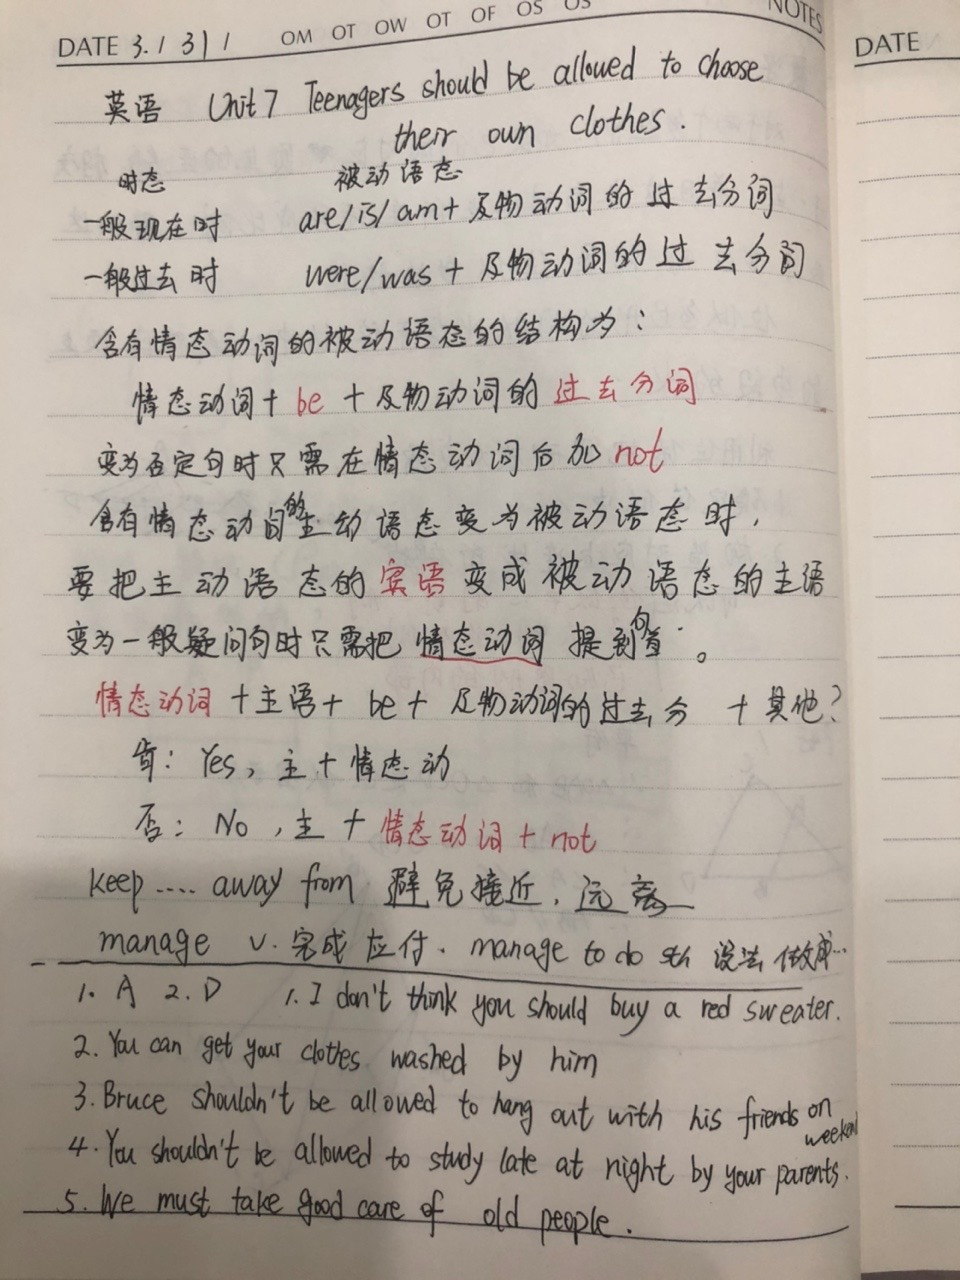 DATE 3.1 31 1 OM OT OW OT OF OS OS NOTES
DATE
英语 Unit 7 Teenagers should be allowed to choose
their own clothes.
时态 被动语态
一般现在时 are/is/am + 及物动词的过去分词
一般过去时 were/was + 及物动词的过去分词
含有情态动词的被动语态的结构为:
情态动词+ be + 及物动词的过去分词
变为否定句时只需在情态动词后加 not
含有情态动词的主动语态变为被动语态时,
要把主动语态的宾语变成被动语态的主语
变为一般疑问句时只需把情态动词提到句首。
情态动词+主语+ be + 及物动词的过去分 + 其他?
肯: Yes, 主+情态动
否: No, 主+情态动词+ not
keep .... away from 避免接近, 远离
manage v. 完成 应付. manage to do sth 设法做成...
1. A 2. D 1. I don't think you should buy a red sweater.
2. You can get your clothes washed by him
3. Bruce shouldn't be allowed to hang out with his friends on weekend
4. You shouldn't be allowed to study late at night by your parents.
5. We must take good care of old people.